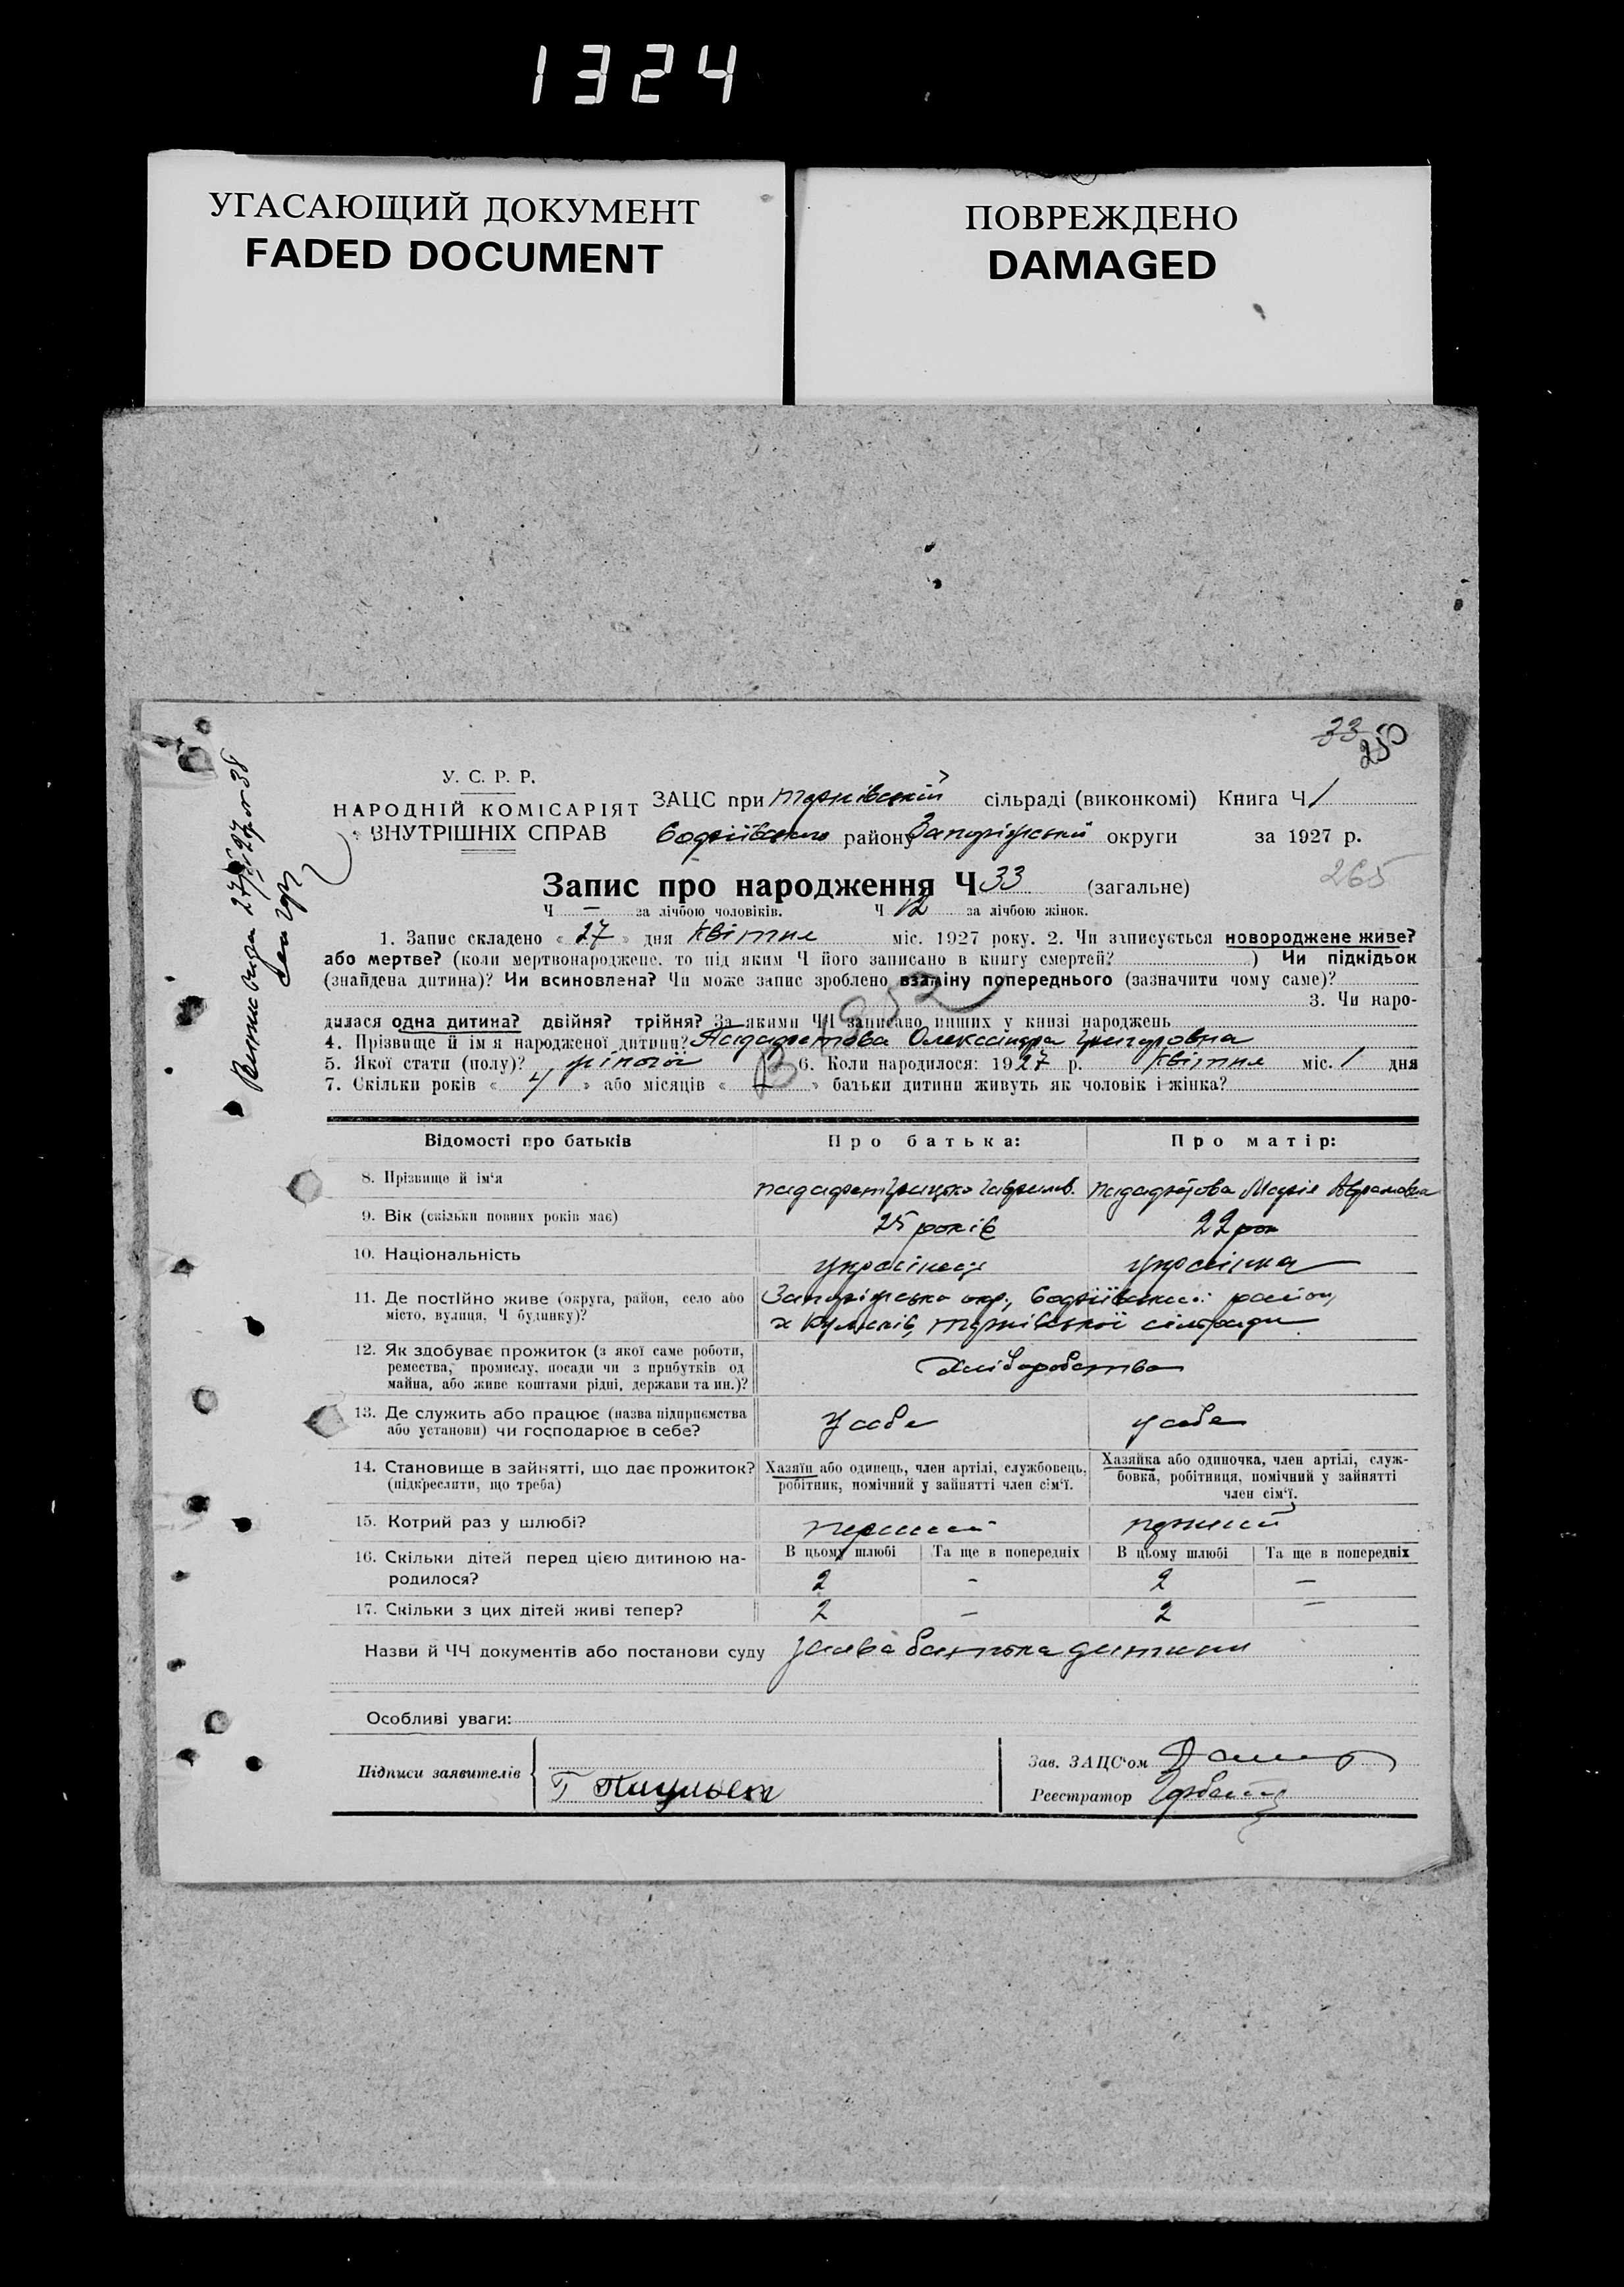 1324
УГАСАЮЩИЙ ДОКУМЕНТ
FADED DOCUMENT
ПОВРЕЖДЕНО
DAMAGED
33
250
У. С. Р. Р.
НАРОДНІЙ КОМІСАРІЯТ
ВНУТРІШНІХ СПРАВ
ЗАЦС при сільраді (виконкомі) Книга Ч 1
району Запоріжській округи за 1927 р.
265
Запис про народження Ч 33 (загальне)
Ч — за лічбою чоловіків. Ч 12 за лічбою жінок.
1. Запис складено « 27 » дня Квітня міс. 1927 року. 2. Чи записується новороджене живе?
або мертве? (коли мертвонароджене, то під яким Ч його записано в книгу смертей? ) Чи підкідьок
(знайдена дитина)? Чи всиновлена? Чи може запис зроблено взаміну попереднього (зазначити чому саме)?
3. Чи наро-
дилася одна дитина? двійня? трійня? За якими ЧЧ записано инших у книзі народжень
4. Прізвище й ім'я народженої дитини? Олександра Григоровна
5. Якої стати (полу)? жіночої 6. Коли народилося: 1927 р. Квітня міс. 1 дня
7. Скільки років « 4 » або місяців « — » батьки дитини живуть як чоловік і жінка?
Відомості про батьків
Про батька:
Про матір:
8. Прізвище й ім'я
Марія Аврамовна
9. Вік (скільки повних років має)
25 років
22 рок
10. Національність
українець
українка
11. Де постійно живе (округа, район, село або
місто, вулиця, Ч будинку)?
Запоріжська окр., район,
х сільради
12. Як здобуває прожиток (з якої саме роботи,
ремества, промислу, посади чи з прибутків од
майна, або живе коштами рідні, держави та ин.)?
Хліборобство
13. Де служить або працює (назва підприємства
або установи) чи господарює в себе?
у себе
у себе
14. Становище в зайнятті, що дає прожиток?
(підкреслити, що треба)
Хазяїн або одинець, член артілі, службовець,
робітник, помічний у зайнятті член сім'ї.
Хазяйка або одиночка, член артілі, служ-
бовка, робітниця, помічний у зайнятті
член сім'ї.
15. Котрий раз у шлюбі?
перший
перший
16. Скільки дітей перед цією дитиною на-
родилося?
В цьому шлюбі Та ще в попередніх В цьому шлюбі Та ще в попередніх
2 - 2 —
17. Скільки з цих дітей живі тепер?
2 — 2 —
Назви й ЧЧ документів або постанови суду заява батька дитини
Особливі уваги:
Підписи заявителів
Зав. ЗАЦС'ом
Реєстратор